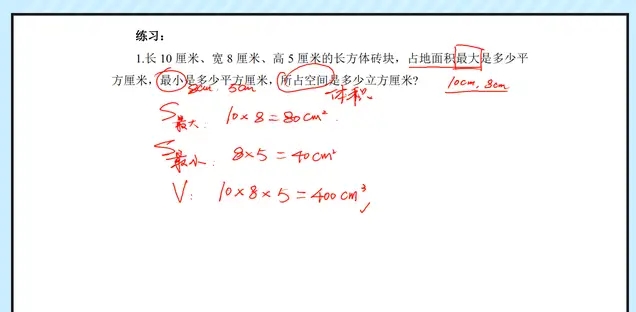 练习：
1.长 10 厘米、宽 8 厘米、高 5 厘米的长方体砖块，占地面积最大是多少平
方厘米，最小是多少平方厘米，所占空间是多少立方厘米？
10cm. 8cm
8cm. 5cm
体积.
S最大: 10×8=80cm²
S最小: 8×5=40cm²
V: 10×8×5=400cm³